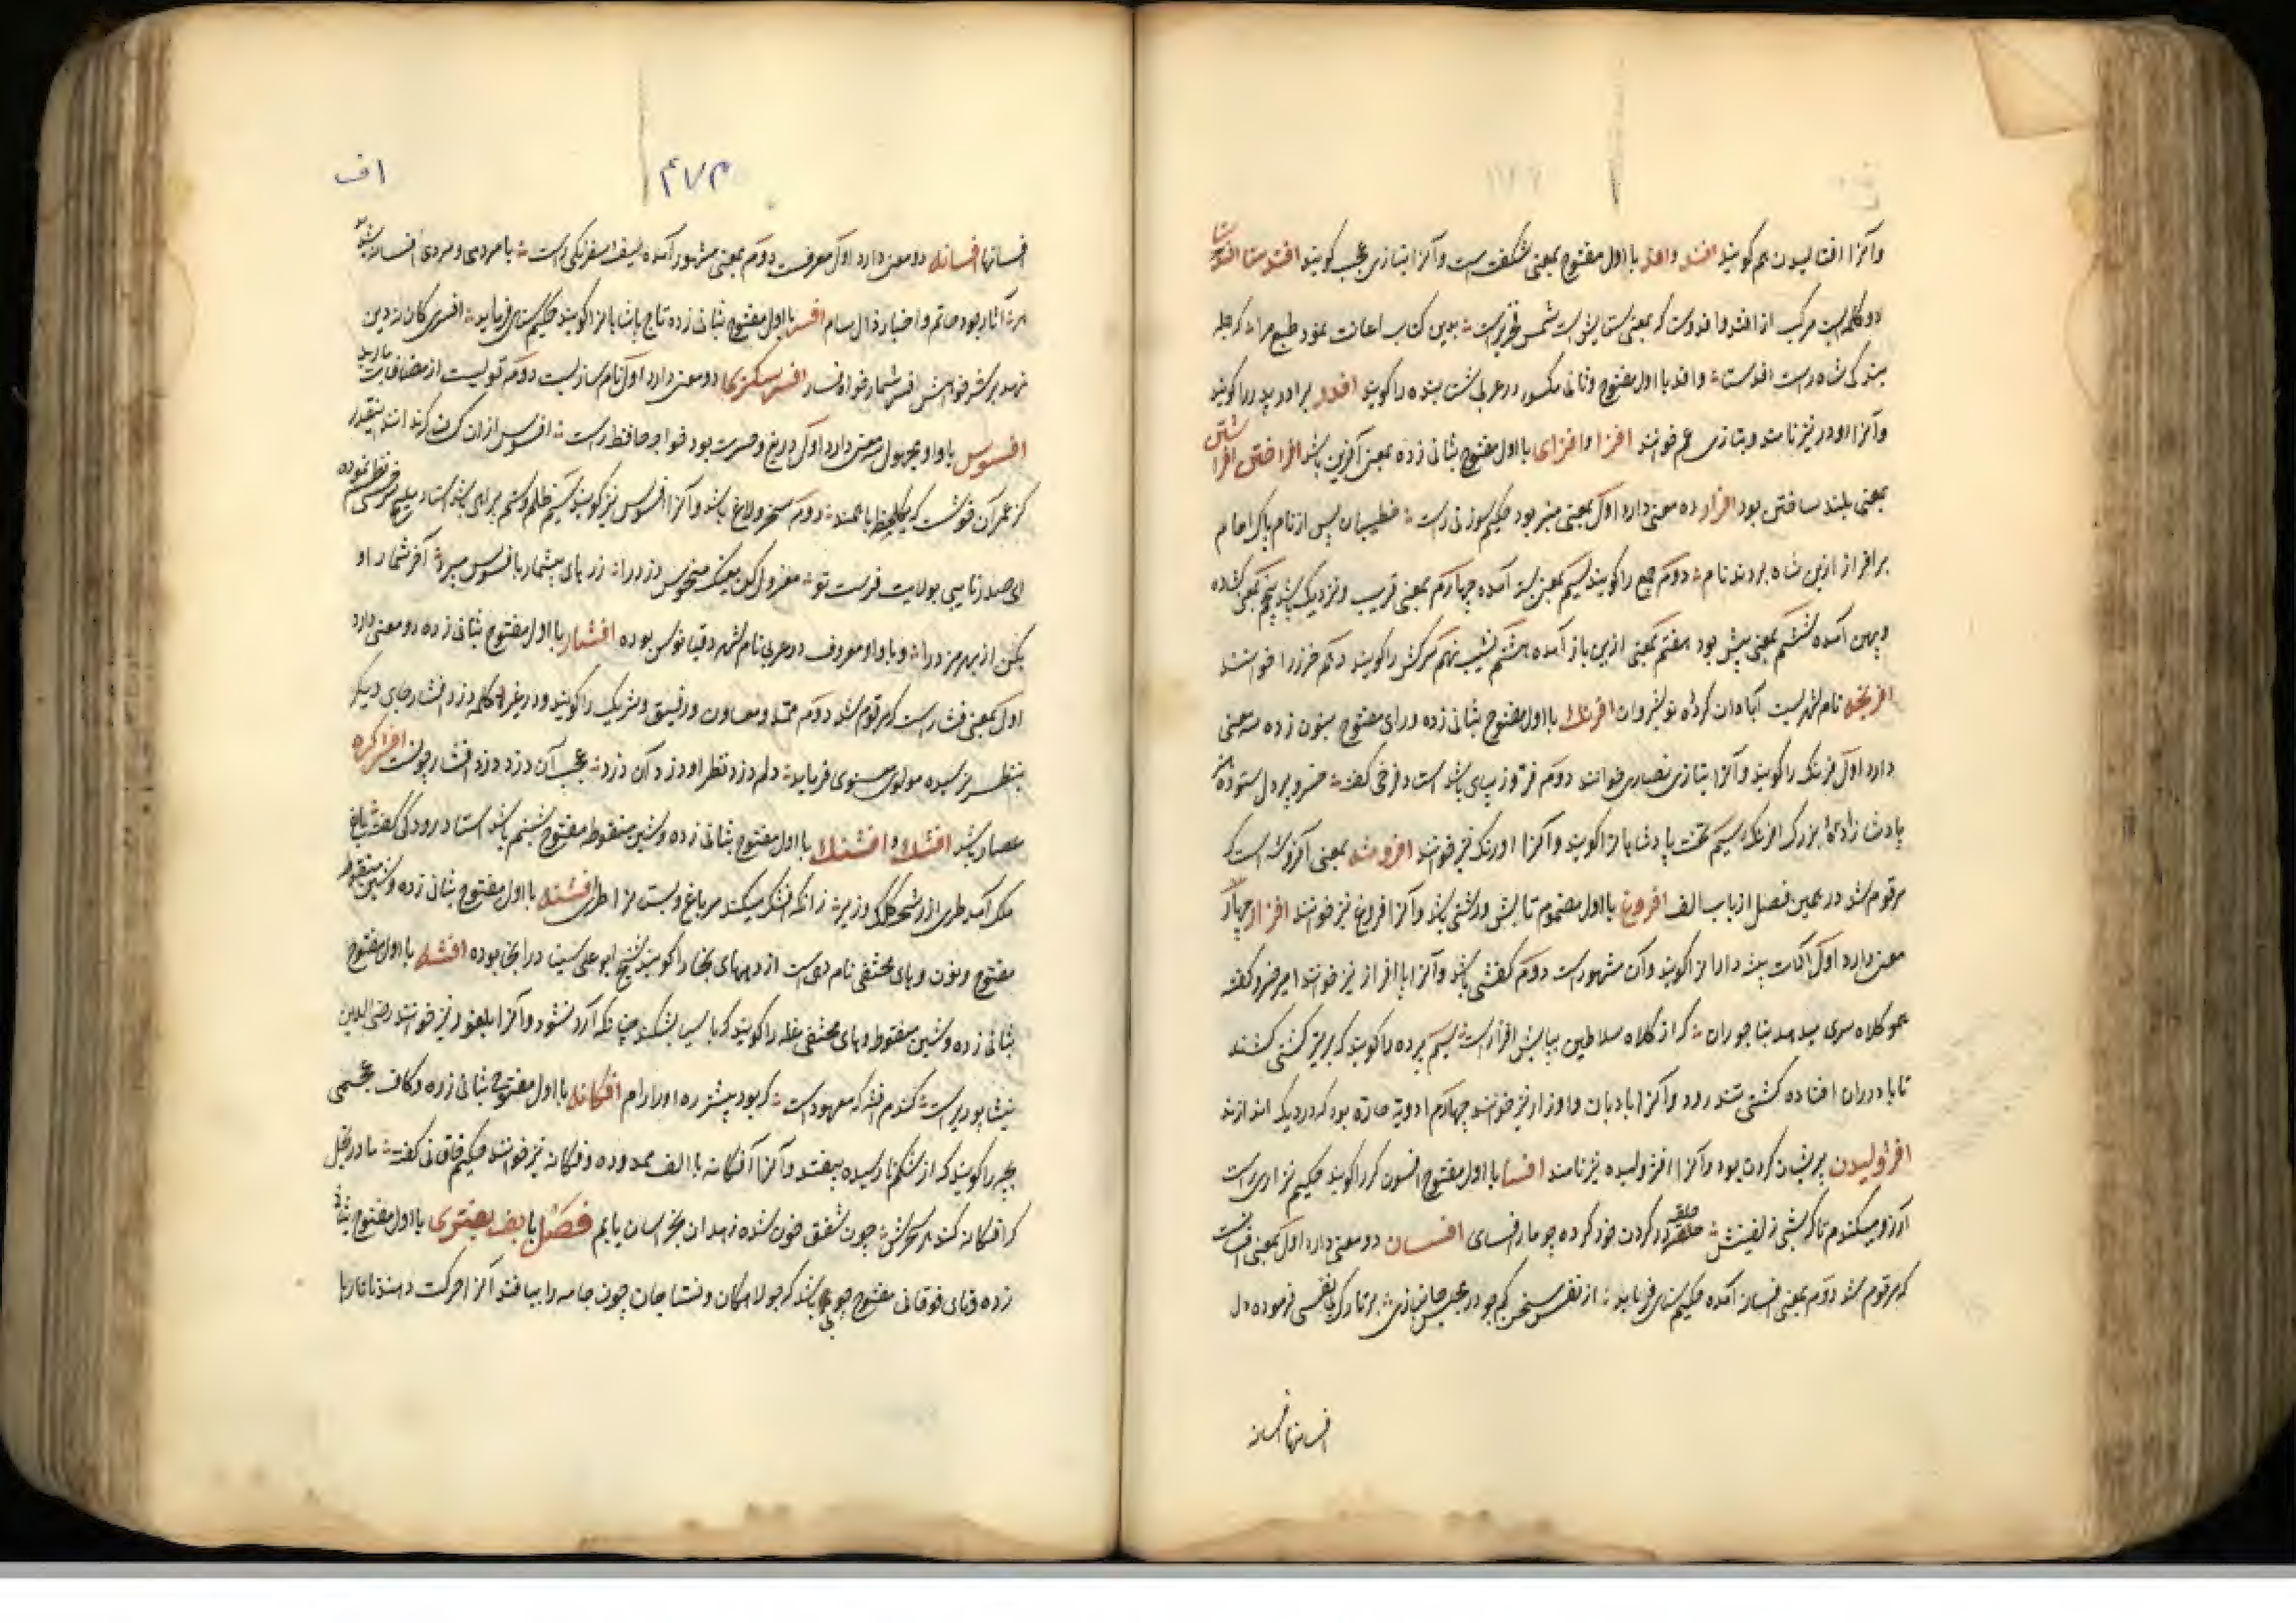 وآنرا افتالیدن هم گویند افد وافد با اول مفتوح بمعنی شگفت است وآنرا بتازی عجب گویند افدستا افد
دو کلمه است مرکب از افد واز دوست که بمعنی ستایش است شمس فخری راست بدین کتاب اعانت نمود طبع مرا که جمله
بندگی شاه راست افدستا وافد با اول مفتوح وثانی مکسور در عربی شتابنده را گویند افدر برادر پدر را گویند
وآنرا اودر نیز نامند وبتازی عم خوانند افرا وافرای با اول مفتوح بثانی زده بمعنی آفرین باشد افراختن افرا
شتن
بمعنی بلند ساختن بود افراز ده معنی دارد اول بمعنی منبر بود حکیم سوزنی راست خطیبان پس از نام پاک امام
برافراز ازین شاه بردند نام دوم جمع را گویند سیم بمعنی بسته آمده چهارم بمعنی قریب ونزدیک باشد پنجم بمعنی گشاده
وپهن آمده ششم بمعنی پیش بود هفتم بمعنی ازین باز آمده هشتم نشیب نهم سرکش را گویند دهم خرزرا خوانند
نام شهریست آبادان کرده نوشیروان افرنک با اول مفتوح بثانی زده ورای مفتوح بنون زده سه معنی
دارد اول فرنک را گویند وآنرا بتازی نصاری خوانند دوم فر وزیبای باشد استاد فرخی گفته خسرو پردل ستوده
پادشازاده بزرگ افرنک سیم تخت پادشاهانرا گویند وآنرا اورنک نیز خوانند افروشه بمعنی آفروشه است که
مرقوم شد در همین فصل از باب الف افروغ با اول مضموم تابش وروشنی باشد وآنرا فروغ نیز خوانند افزار چهار
معنی دارد اول آلات پیشه داران را گویند وآن مشهور است دوم کفش باشد وآنرا پاافزار نیز خوانند امیر خسرو گفته
کلاه سری میدهد بتاجوران که از کلاه سلاطین بپایش افزار است سیم پرده را گویند که بر تیر کشتی کشند
تا باد دران افتاده کشتی تند رود وآنرا بادبان واوزار نیز خوانند چهارم ادویه حاره بود که در دیک اندازند
افژولیدن پریشان کردن بود وآنرا افژولیده نیز نامند افسا با اول مفتوح افسون گر را گویند حکیم نزاری راست
آرزو میکندم تا که بشی زلفینش حلقه در گردن خود کرده چو مارافسای افسان دو معنی دارد اول بمعنی
که مرقوم شد دوم بمعنی افسانه آمده حکیم سنای فرماید از نفس سخن کم جو در مجلس جانبازی
افسانها افسانه
۴۷۳
اف
افسانها افسانه دو معنی دارد اول معروفست دوم بمعنی مشهور آمده سیف اسفرنگی راست با مردمی ومردی افسانه شد
آثار جود حاتم واخبار زال سام افسر با اول مفتوح بثانی زده تاج پادشاهانرا گویند حکیم سنای فرماید افسری کان نه دین
نهد بر سر خواهش افسر شمار خواه فسار افسر سکزی دو معنی دارد اول نام سازیست دوم قولیست از مصنفات باربد
افسوس با واو مجهول سه معنی دارد اول دریغ وحسرت بود خواجه حافظ راست افسوس ازان کسان که ندانند اینقدر
کز عمر آن خوشست که یکلحظه با همند دوم سخر ولاغ باشد وآنرا فسوس نیز گویند سیم ظلم وستم
ای صد زتا یبی بولایت فرست تو
با واو معروف در عربی نام شهر دقیانوس بوده افشار با اول مفتوح بثانی زده دو معنی دارد
اول بمعنی فشار است که مرقوم شد دوم ممد ومعاون ورفیق وشریک را گویند
بنظر نرسیده مولوی معنوی فرماید دلم دزد نظر او دزد آن دزد عجب آن دزد دزد افشار چونست افراکره
عصار باشد افشک وافشنک با اول مفتوح بثانی زده وشین منقوطه مفتوح شبنم باشد استاد رودکی گفته باغ
ملک آمد طری از رشحه کلک وزیر زانکه افشک میکند مر باغ وبستانرا طری افشنه با اول مفتوح بثانی زده وشین منقوط
مفتوح ونون وهای مختفی نام دهی است از دیههای بخارا گویند شیخ ابو علی سینا در انجا بوده افشه با اول مفتوح
بثانی زده وشین منقوط وهای مختفی غله را گویند که بآسیا بشکنند چنانکه آرد نشود وآنرا بلغور نیز خوانند رضی الدین
نیشابوری راست گندم افشه که معهود است که بود بیشتر ره اورا رام افکانه با اول مفتوح بثانی زده وکاف عجمی
بچه را گویند که از شکم نارسیده بیفتد وآنرا آفکانه با الف ممدوده وفکانه نیز خوانند حکیم خاقانی گفته مادر نخل
که افکانه کند هر سحرش چون شفق خون شده زهدان بخراسان یابم فصل با بفتری با اول مفتوح بثانی
زده وتای فوقانی مفتوح چوبی باشد که جولاهکان ونساجان چون جامه را ببافند آنرا حرکت دهند تا تارها